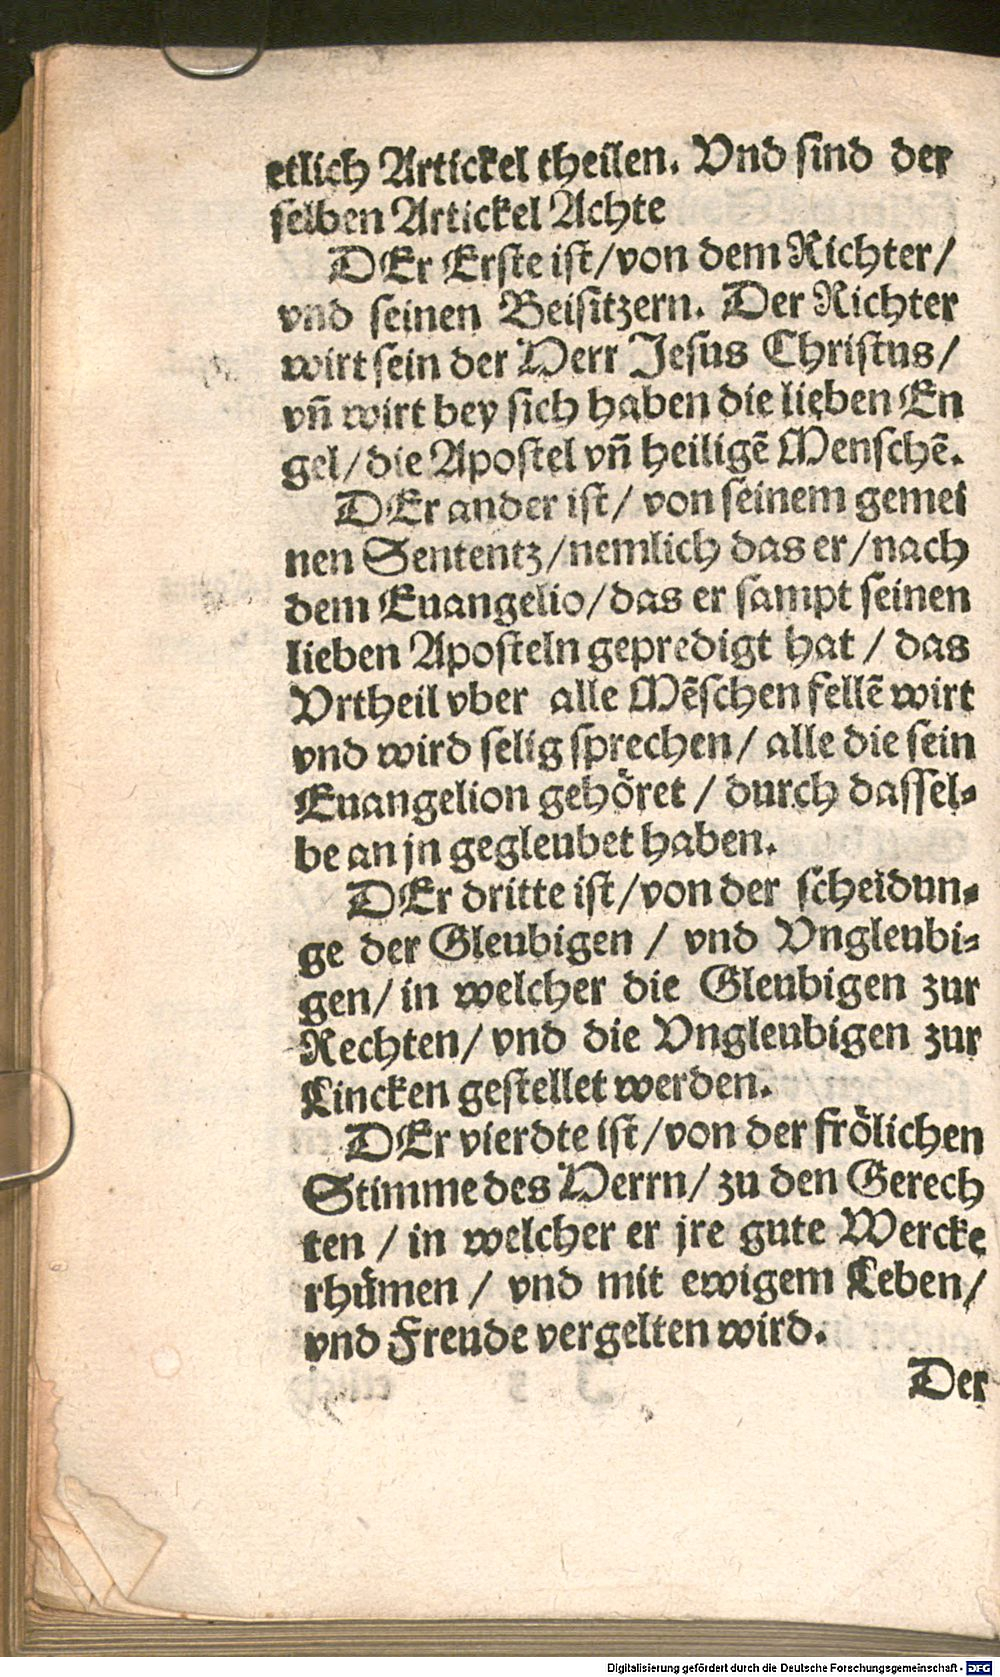 etlich Artickel theilen. Vnd sind der
selben Artickel Achte
DEr Erste ist/von dem Richter/
vnd seinen Beisitzern. Der Richter
wirt sein der Herr Jesus Christus/
vñ wirt bey sich haben die lieben En
gel/die Apostel vñ heiligẽ Menschẽ.
DEr ander ist/ von seinem gemei
nen Sententz/nemlich das er/nach
dem Euangelio/das er sampt seinen
lieben Aposteln gepredigt hat / das
Vrtheil vber alle Mẽschen fellẽ wirt
vnd wird selig sprechen/ alle die sein
Euangelion gehöret / durch dassel-
be an jn gegleubet haben.
DEr dritte ist/von der scheidun-
ge der Gleubigen / vnd Vngleubi-
gen/ in welcher die Gleubigen zur
Rechten/ vnd die Vngleubigen zur
Lincken gestellet werden.
DEr vierdte ist/von der frölichen
Stimme des Herrn/ zu den Gerech
ten / in welcher er jre gute Wercke
rhümen / vnd mit ewigem Leben/
vnd Freude vergelten wird.
Der
Digitalisierung gefördert durch die Deutsche Forschungsgemeinschaft - DFG